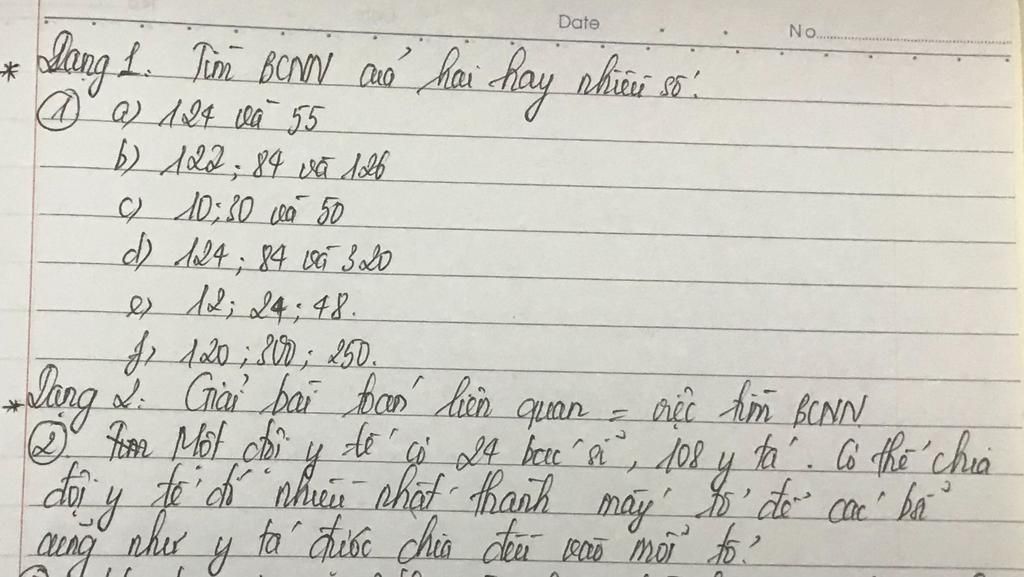 Date No
* Dạng 1: Tìm BCNN của hai hay nhiều số:
① a) 124 và 55
b) 122; 84 và 126
c) 10; 30 và 50
d) 124; 84 và 320
e) 12; 24; 48.
f) 120; 300; 250.
* Dạng 2: Giải bài toán liên quan = việc tìm BCNN
②. Một đội y tế có 24 bác sĩ, 108 y tá. Có thể chia
đội y tế đó nhiều nhất thành mấy tổ để các bá
cũng như y tá được chia đều vào mỗi tổ?